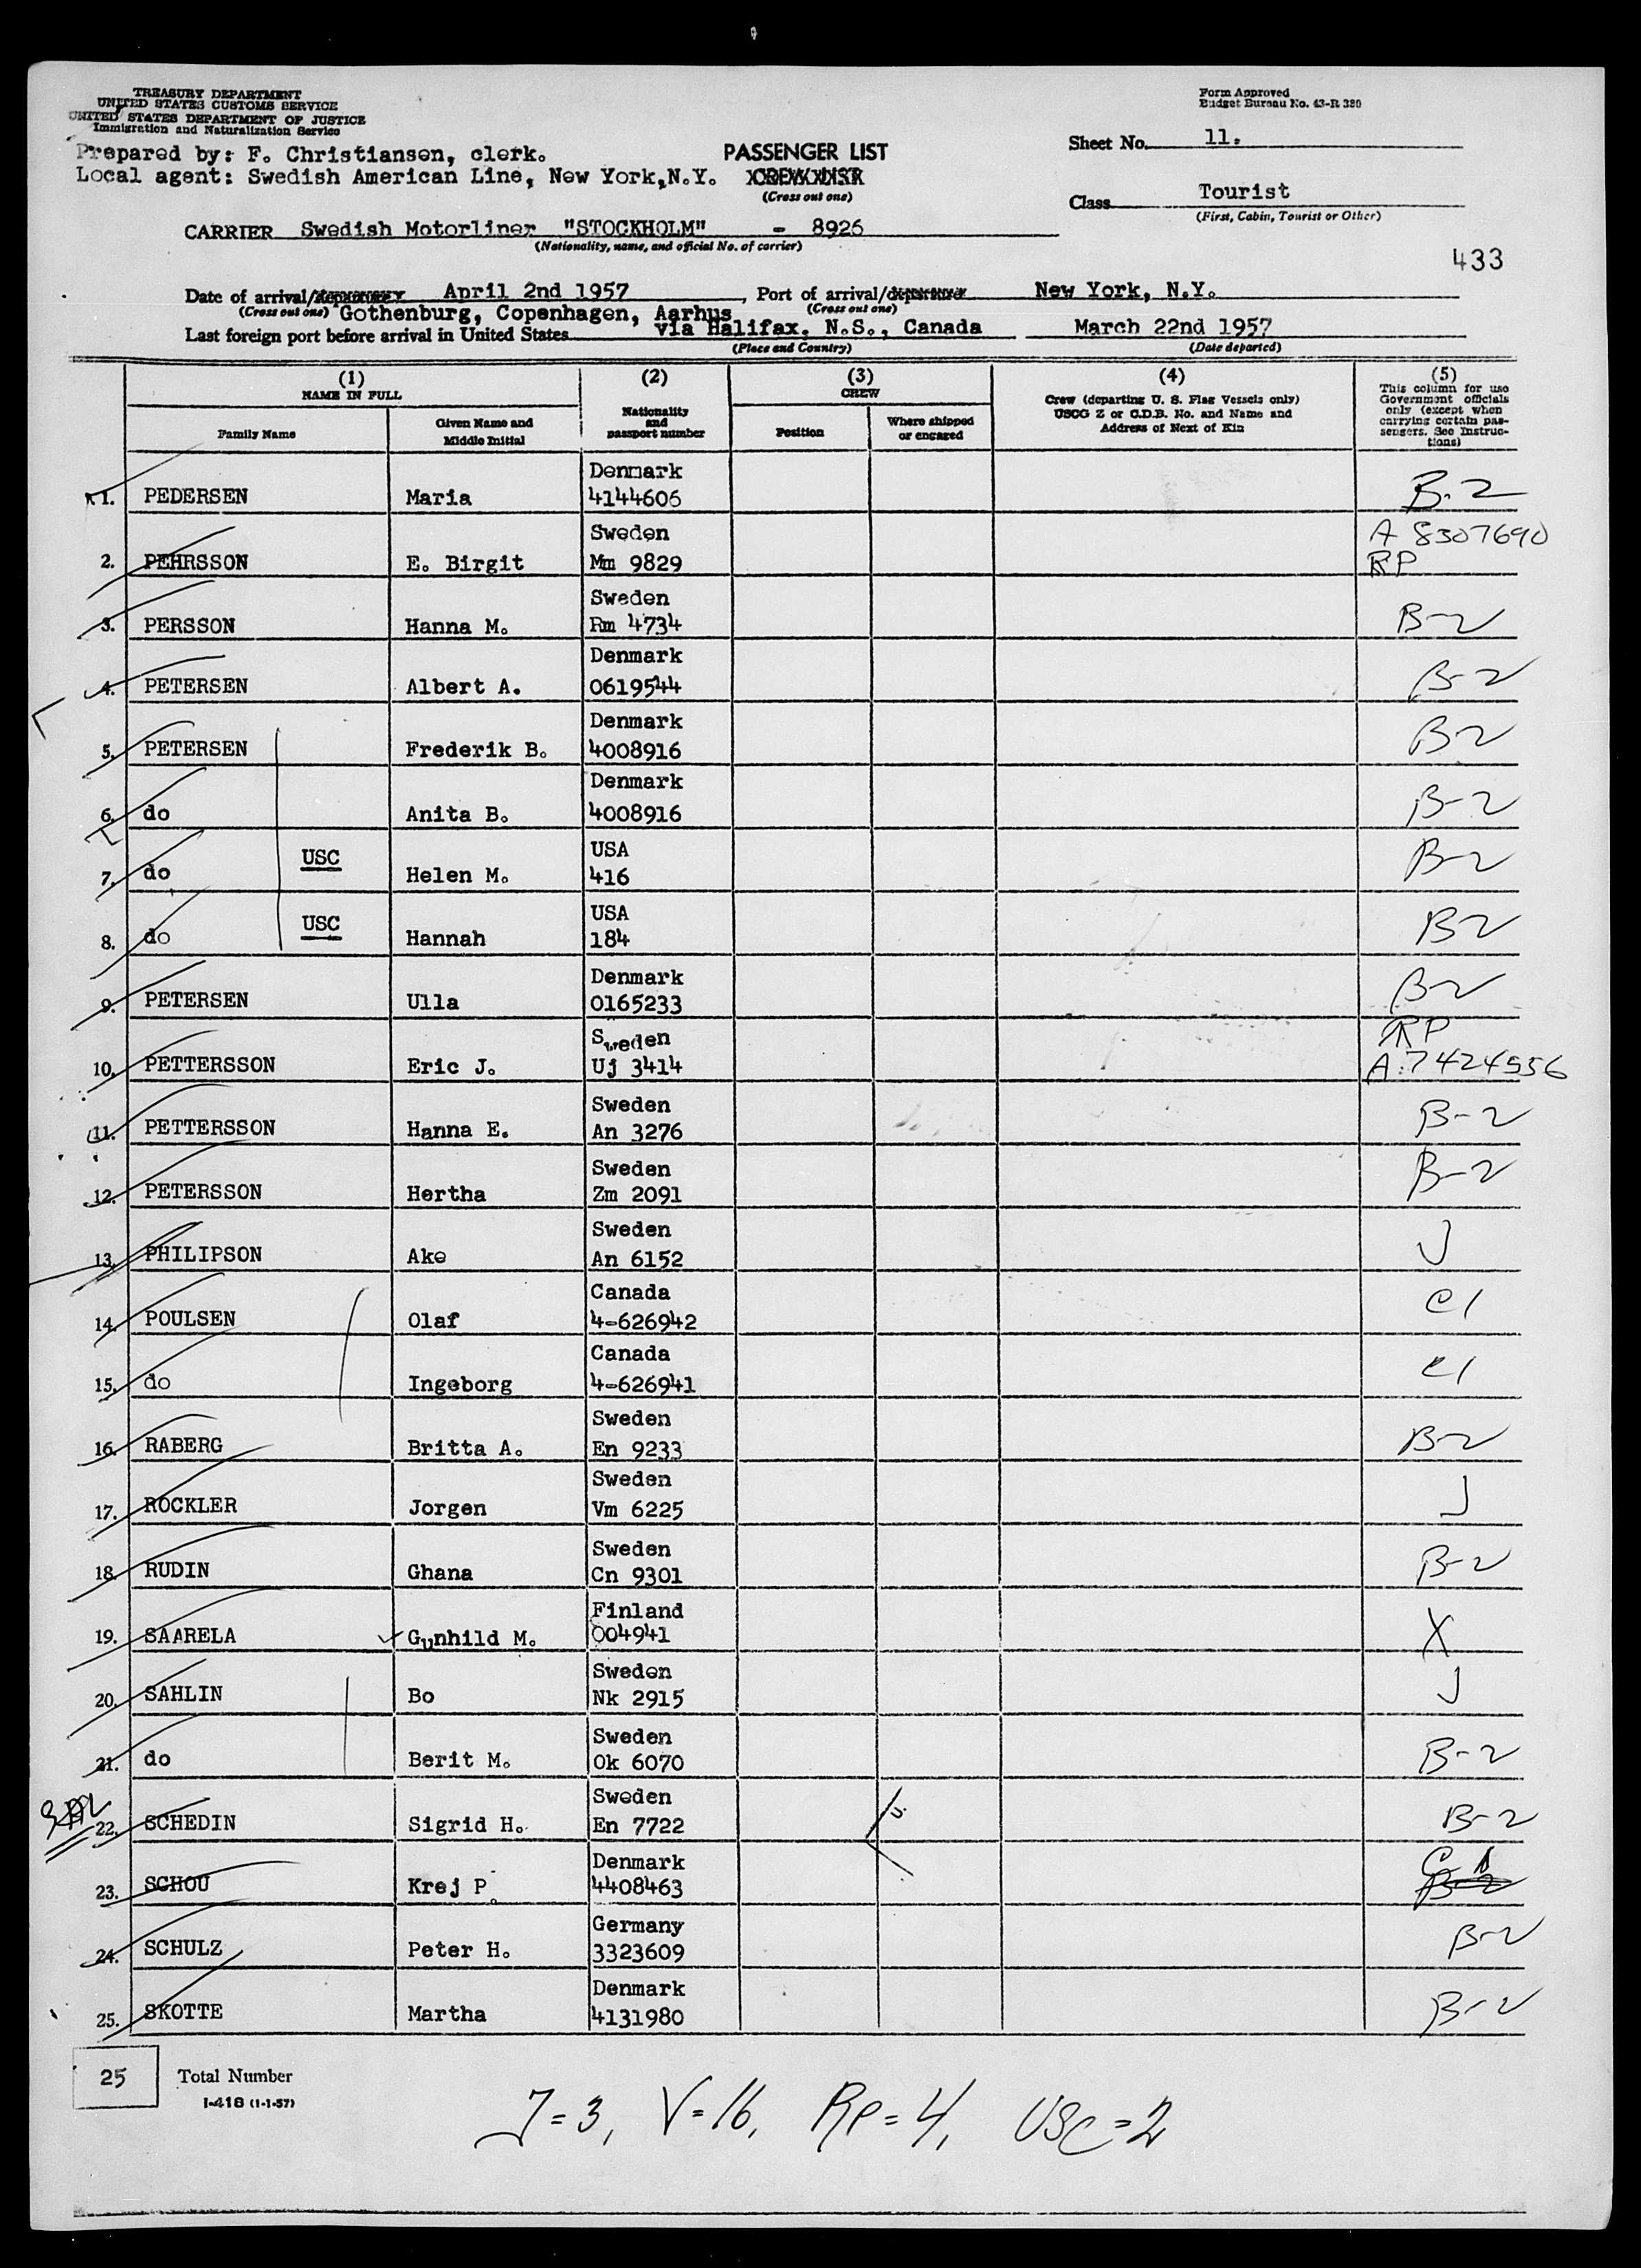 TREASURY DEPARTMENT
UNITED STATES CUSTOMS SERVICE
UNITED STATES DEPARTMENT OF JUSTICE
Immigration and Naturalization Service
Form Approved
Budget Bureau No. 43-R 380
Prepared by: F. Christiansen, clerk.
Local agent: Swedish American Line, New York, N.Y.
PASSENGER LIST
CREW LIST
(Cross out one)
Sheet No. 11.
Class Tourist
(First, Cabin, Tourist or Other)
CARRIER Swedish Motorliner "STOCKHOLM" - 8926
(Nationality, name, and official No. of carrier)
433
Date of arrival/departure April 2nd 1957, Port of arrival/departure New York, N.Y.
(Cross out one) Gothenburg, Copenhagen, Aarhus (Cross out one)
Last foreign port before arrival in United States via Halifax, N.S., Canada March 22nd 1957
(Place and Country) (Date departed)
(1) NAME IN FULL
Family Name
Given Name and Middle Initial
(2) Nationality and passport number
(3) CREW
Position
Where shipped or engaged
(4) Crew (departing U. S. Flag Vessels only)
USCG Z or C.D.B. No. and Name and
Address of Next of Kin
(5) This column for use
Government officials
only (except when
carrying certain pas-
sengers. See Instruc-
tions)
1. PEDERSEN Maria Denmark 4144606 B-2
2. PEHRSSON E. Birgit Sweden Mm 9829 A 8307690 RP
3. PERSSON Hanna M. Sweden Rm 4734 B-2
4. PETERSEN Albert A. Denmark 0619544 B-2
5. PETERSEN Frederik B. Denmark 4008916 B-2
6. do Anita B. Denmark 4008916 B-2
7. do USC Helen M. USA 416 B-2
8. do USC Hannah USA 184 B2
9. PETERSEN Ulla Denmark 0165233 B-2
10. PETTERSSON Eric J. Sweden Uj 3414 RP A:7424556
11. PETTERSSON Hanna E. Sweden An 3276 B-2
12. PETERSSON Hertha Sweden Zm 2091 B-2
13. PHILIPSON Ake Sweden An 6152 J
14. POULSEN Olaf Canada 4-626942 C1
15. do Ingeborg Canada 4-626941 C1
16. RABERG Britta A. Sweden En 9233 B-2
17. ROCKLER Jorgen Sweden Vm 6225 J
18. RUDIN Ghana Sweden Cn 9301 B-2
19. SAARELA Gunhild M. Finland 004941 X
20. SAHLIN Bo Sweden Nk 2915 J
21. do Berit M. Sweden Ok 6070 B-2
22. SCHEDIN Sigrid H. Sweden En 7722 B-2
23. SCHOU Krej P. Denmark 4408463 C 1 B-2
24. SCHULZ Peter H. Germany 3323609 B-2
25. SKOTTE Martha Denmark 4131980 B-2
25 Total Number
I-418 (1-1-57)
J=3, V=16, Rp=4, USC=2